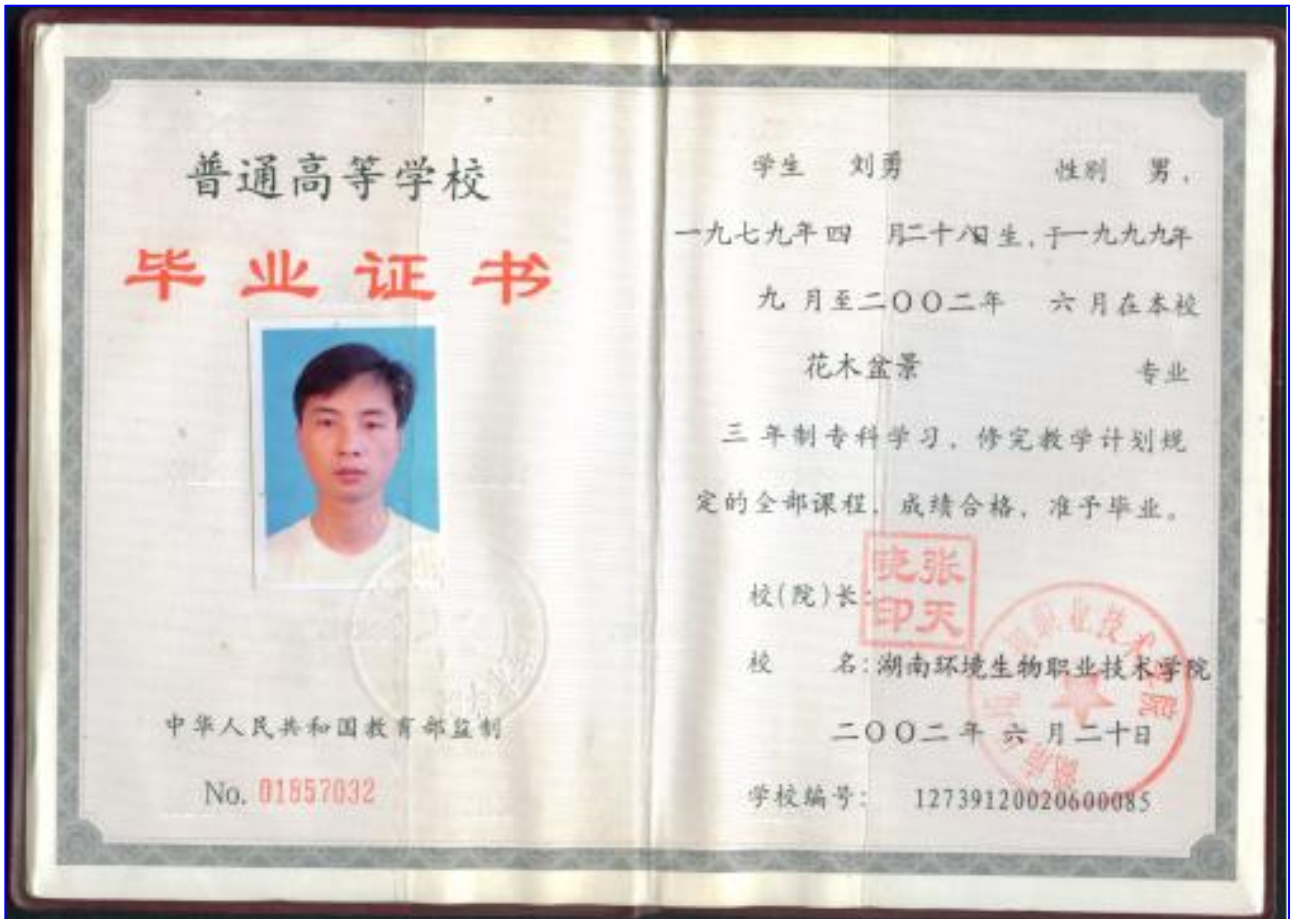 普通高等学校
毕业证书
中华人民共和国教育部监制
No. 01857032
学生 刘勇 性别 男，
一九七九年四 月二十八日生，于一九九九年
九 月至二〇〇二年 六 月在本校
花木盆景 专业
三 年制专科学习，修完教学计划规
定的全部课程，成绩合格，准予毕业。
校(院)长：
张天
印
校 名：湖南环境生物职业技术学院
二〇〇二年 六 月二十日
学校编号： 12739120020600085